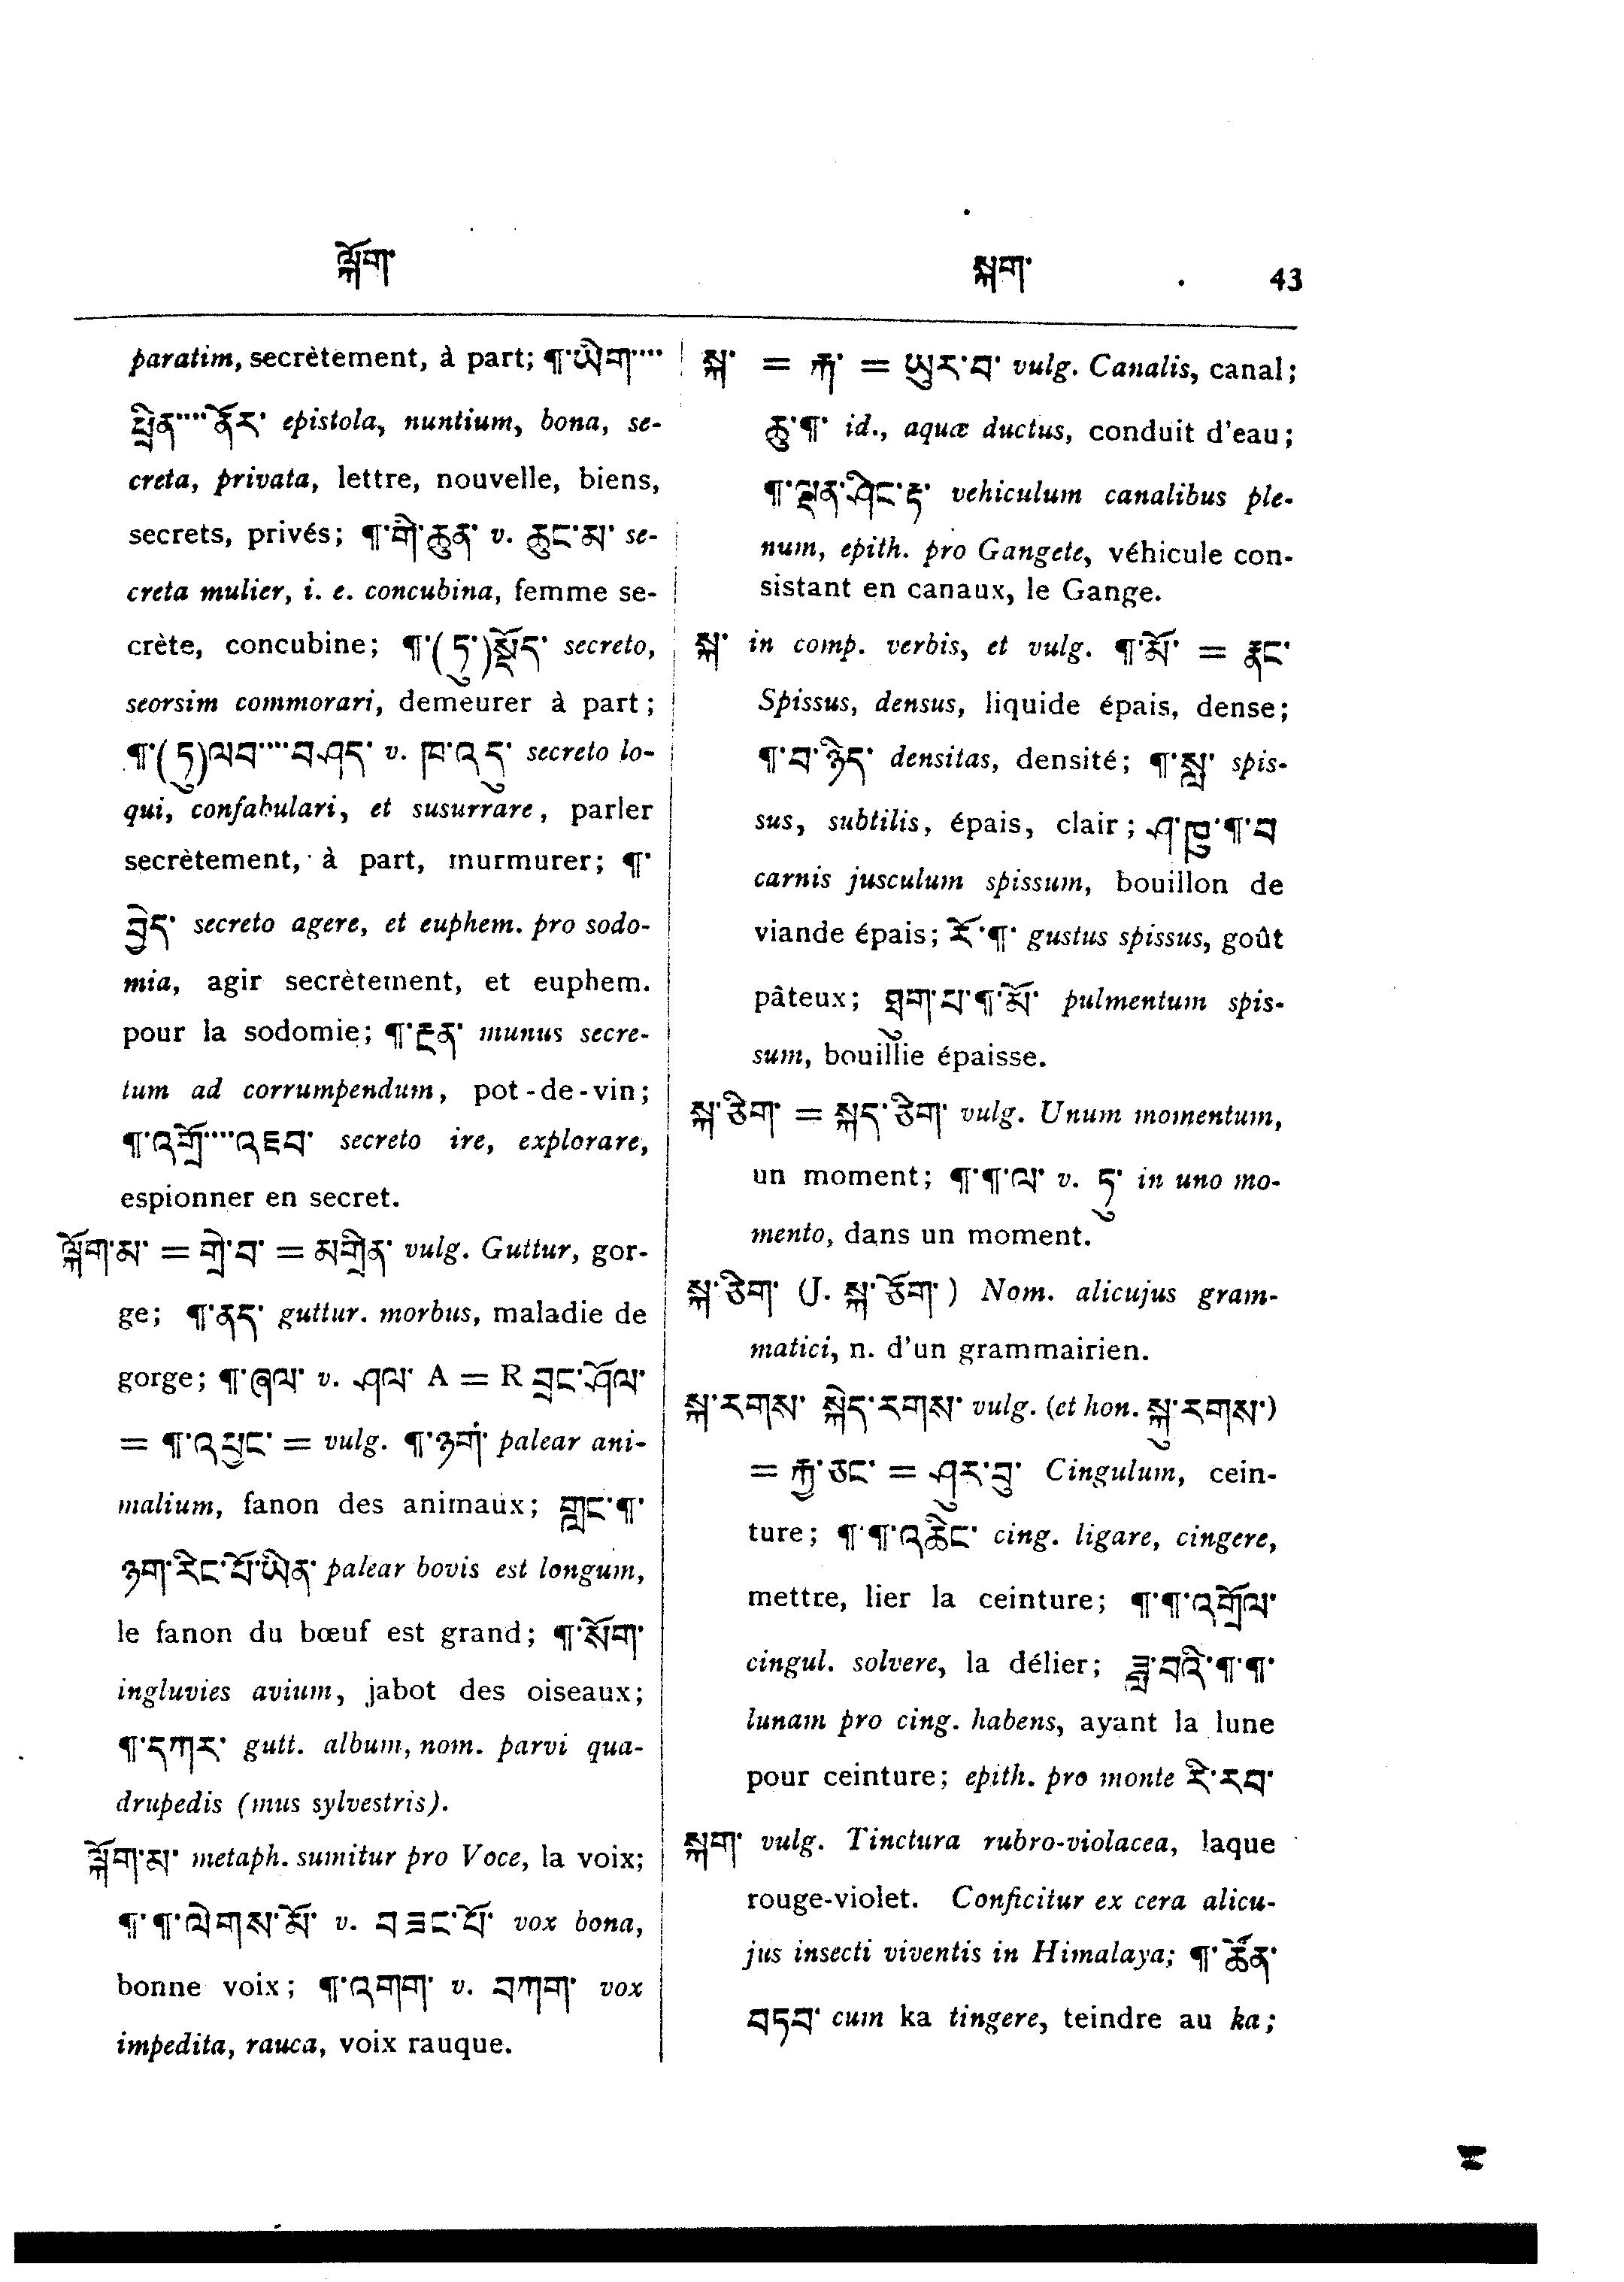 ལྐོག་
སྐག་ 43
paratim, secrètement, à part; ¶་ཡིག་····
ཕྲིན་····ནོར་ epistola, nuntium, bona, se-
creta, privata, lettre, nouvelle, biens,
secrets, privés; ¶་གི་ཆུན་ v. ཆུང་མ་ se-
creta mulier, i. e. concubina, femme se-
crète, concubine; ¶་(ཏུ་)སྡོད་ secreto,
seorsim commorari, demeurer à part;
¶་(ཏུ)ལབ་····བ་ཤད་ v. ཁ་འདུ་ secreto lo-
qui, confabulari, et susurrare, parler
secrètement, à part, murmurer; ¶་
བྱེད་ secreto agere, et euphem. pro sodo-
mia, agir secrètement, et euphem.
pour la sodomie; ¶་རྔན་ munus secre-
tum ad corrumpendum, pot-de-vin;
¶་འགྲོ་····འཇབ་ secreto ire, explorare,
espionner en secret.
ལྐོག་མ་ = གྲེ་བ་ = མགྲིན་ vulg. Guttur, gor-
ge; ¶་ནད་ guttur. morbus, maladie de
gorge; ¶་ཞལ་ v. ཤལ་ A = R བྲང་ཤོལ་
= ¶་འཕྱང་ = vulg. ¶་ཉག་ palear ani-
malium, fanon des animaux; གླང་¶་
ཉག་རིང་པོ་ཡིན་ palear bovis est longum,
le fanon du bœuf est grand; ¶་སོག་
ingluvies avium, jabot des oiseaux;
¶་དཀར་ gutt. album, nom. parvi qua-
drupedis (mus sylvestris).
ལྐོག་མ་ metaph. sumitur pro Voce, la voix;
¶་¶་ལེགས་མོ་ v. བཟང་པོ་ vox bona,
bonne voix; ¶་འགག་ v. བཀག་ vox
impedita, rauca, voix rauque.
སྐ་ = རྐ་ = ཡུར་བ་ vulg. Canalis, canal;
ཆུ་¶་ id., aquæ ductus, conduit d'eau;
¶་ལྡན་ཤིང་རྟ་ vehiculum canalibus ple-
num, epith. pro Gangete, véhicule con-
sistant en canaux, le Gange.
སྐ་ in comp. verbis, et vulg. ¶་མོ་ = རྣང་
Spissus, densus, liquide épais, dense;
¶་བ་ཉིད་ densitas, densité; ¶་སླ་ spis-
sus, subtilis, épais, clair; ཤ་ཁུ་¶་བ
carnis jusculum spissum, bouillon de
viande épais; རོ་¶་ gustus spissus, goût
pâteux; ཐུག་པ་¶་མོ་ pulmentum spis-
sum, bouillie épaisse.
སྐ་ཅིག་ = སྐད་ཅིག་ vulg. Unum momentum,
un moment; ¶་¶་ལ་ v. ཏུ་ in uno mo-
mento, dans un moment.
སྐ་ཅིག་ (J. སྐ་ཅོག་) Nom. alicujus gram-
matici, n. d'un grammairien.
སྐ་རགས་ སྐེད་རགས་ vulg. (et hon. སྐུ་རགས་)
= རྐྱ་ཅང་ = ཤུར་བུ་ Cingulum, cein-
ture; ¶་¶་འཆིང་ cing. ligare, cingere,
mettre, lier la ceinture; ¶་¶་འགྲོལ་
cingul. solvere, la délier; ཟླ་བའི་¶་¶་
lunam pro cing. habens, ayant la lune
pour ceinture; epith. pro monte རི་རབ་
སྐག་ vulg. Tinctura rubro-violacea, laque
rouge-violet. Conficitur ex cera alicu-
jus insecti viventis in Himalaya; ¶་ཚོན་
བཏབ་ cum ka tingere, teindre au ka;